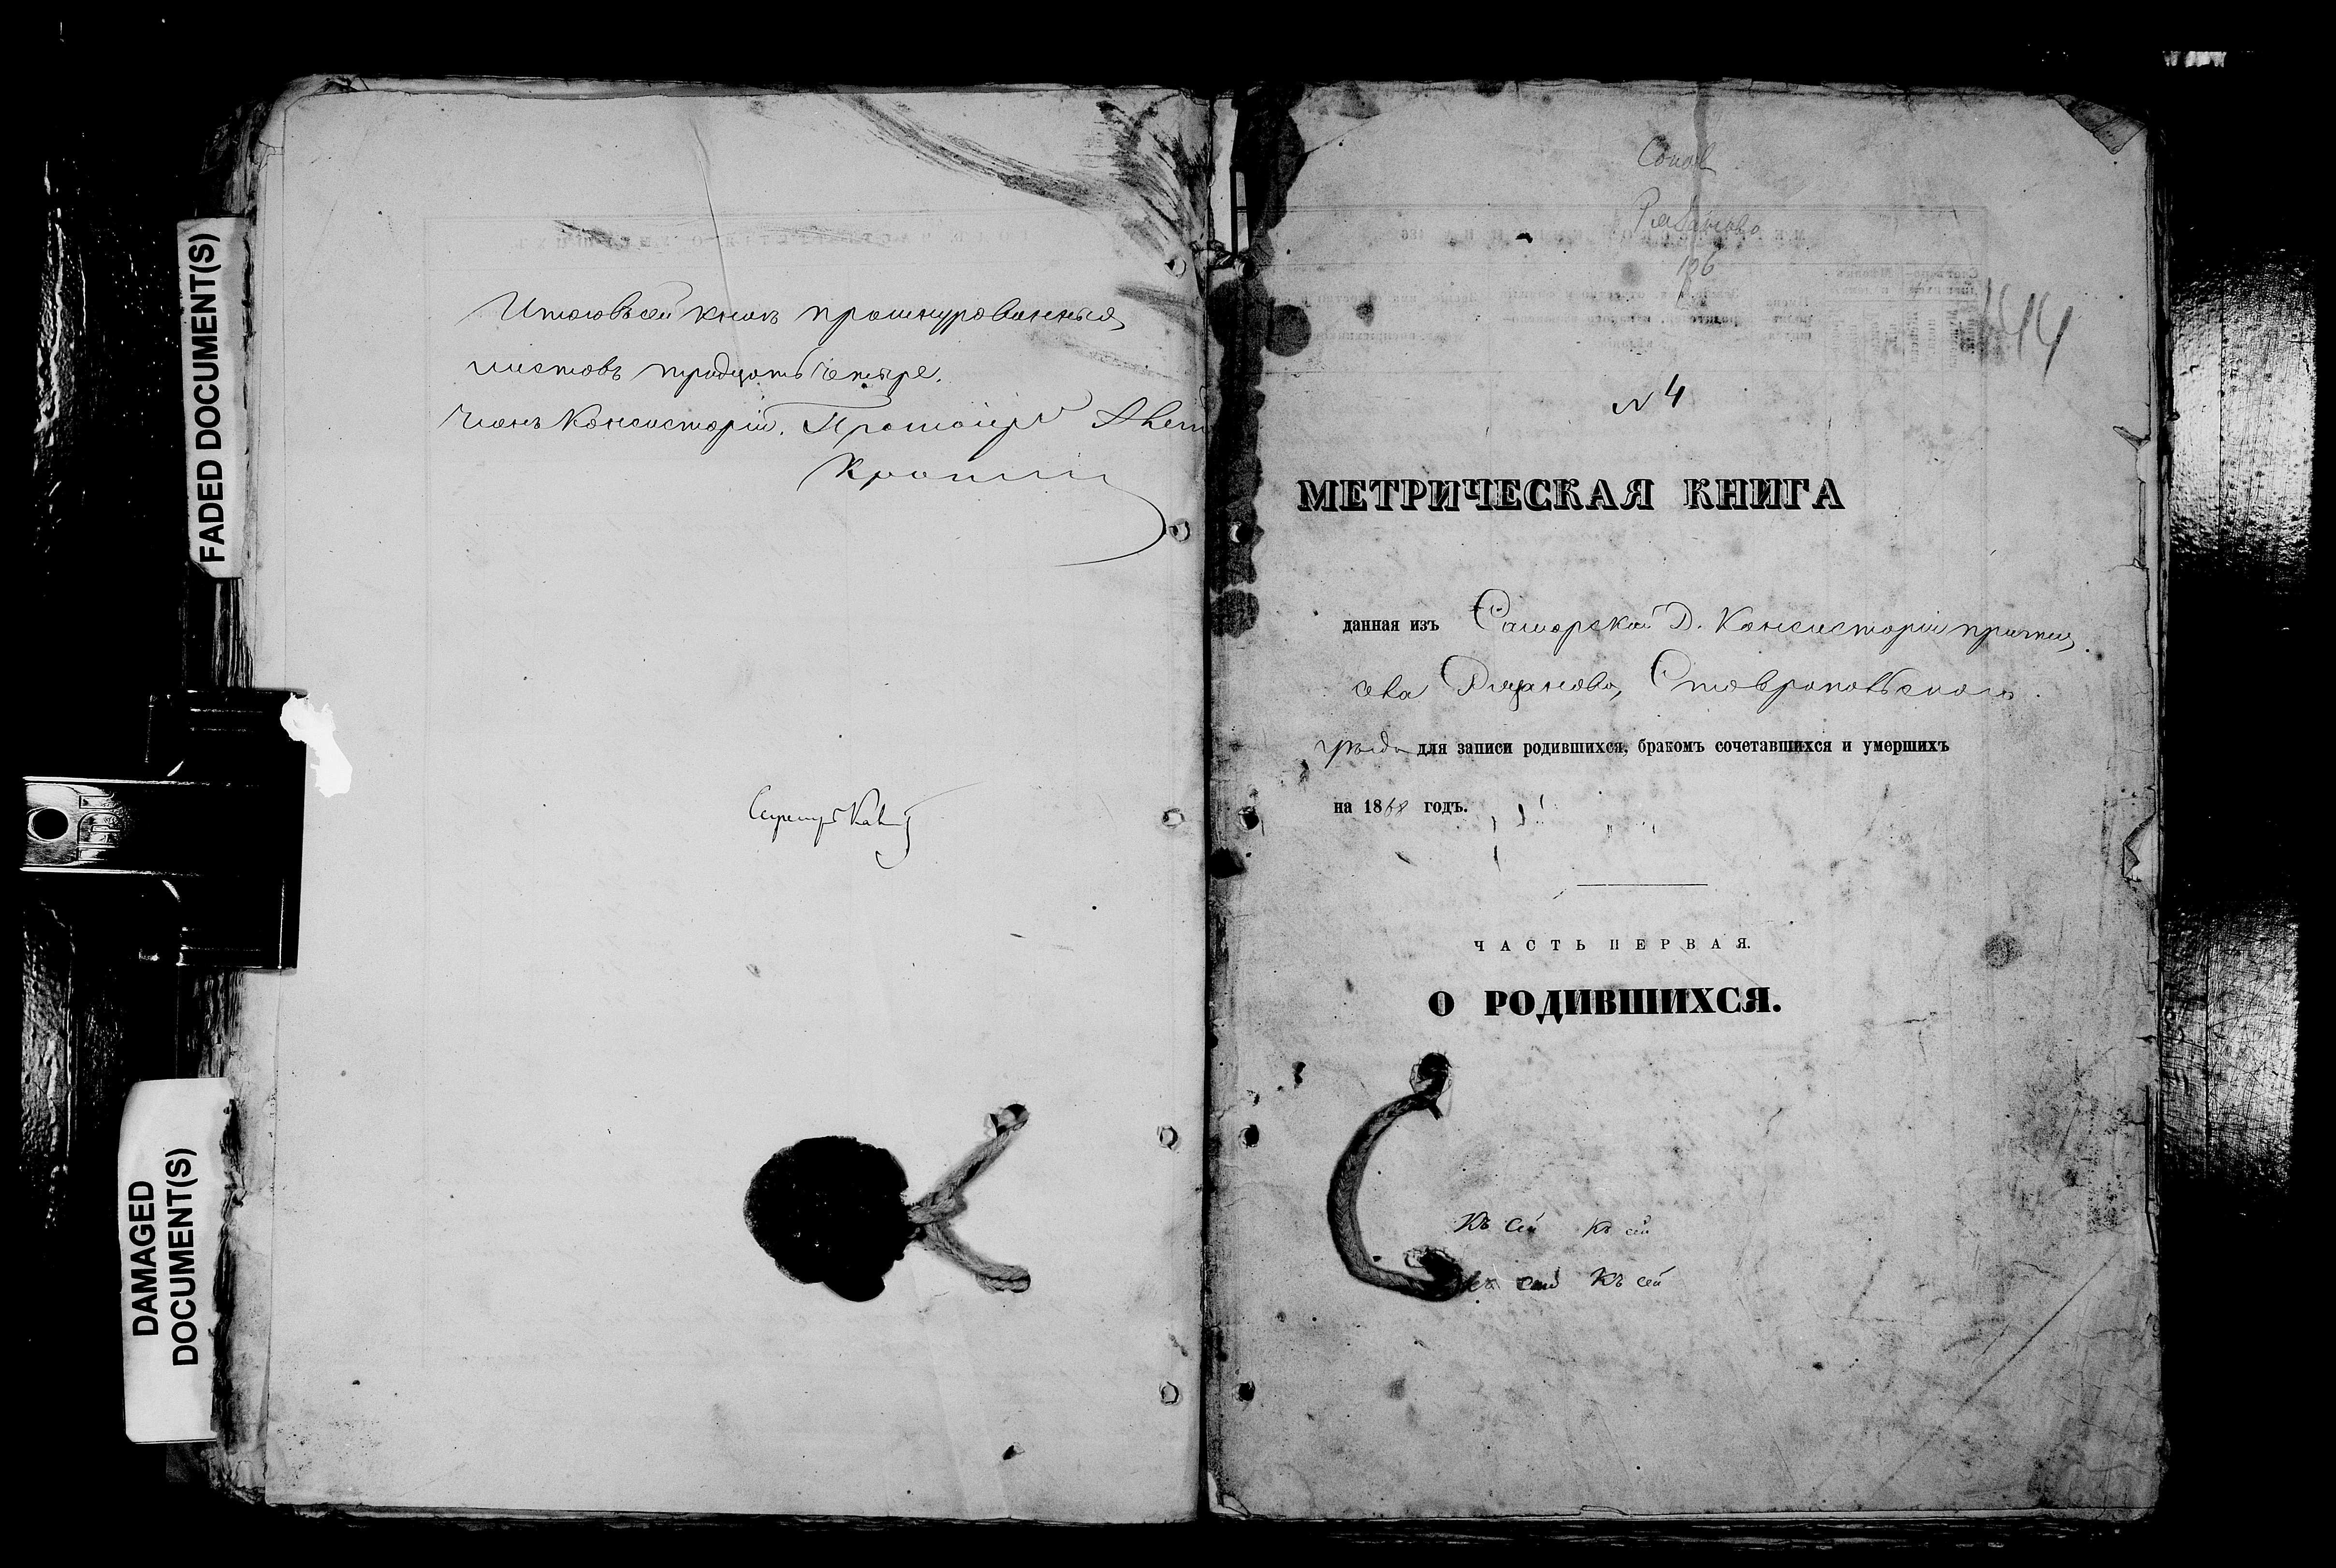 FADED DOCUMENT(S)
DAMAGED
DOCUMENT(S)
Итого въ сей книгѣ прошнурованныхъ
листовъ тридцать четыре.
Членъ Консисторіи, Протоіерей
Секретарь
106
144
N 4
МЕТРИЧЕСКАЯ КНИГА
данная изъ Самарской Д. Консисторіи причту
села Рязаново, Ставропольскаго
уѣзда для записи родившихся, бракомъ сочетавшихся и умершихъ
на 1868 годъ.
ЧАСТЬ ПЕРВАЯ.
О РОДИВШИХСЯ.
Къ сей Къ сей
Къ сей Къ сей